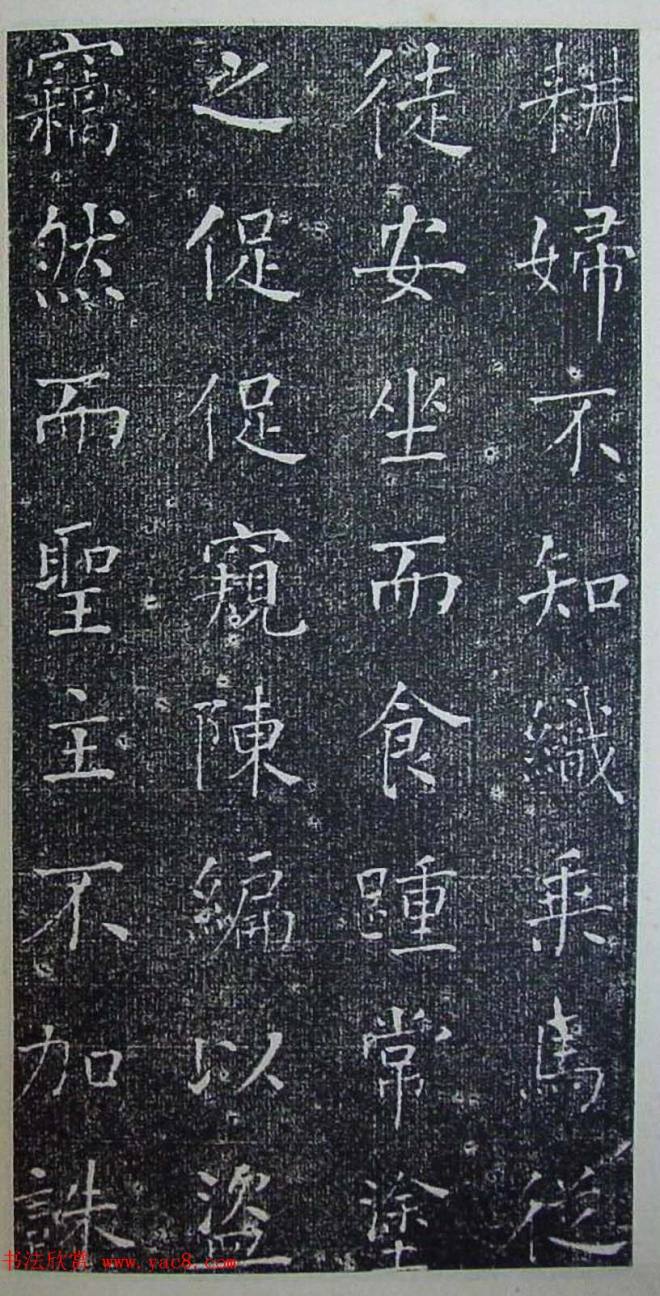 耕婦不知織乗馬從
徒安坐而食踵常塗
之促促窺陳編以盜
竊然而聖主不加誅
书法欣赏 www.yac8.com